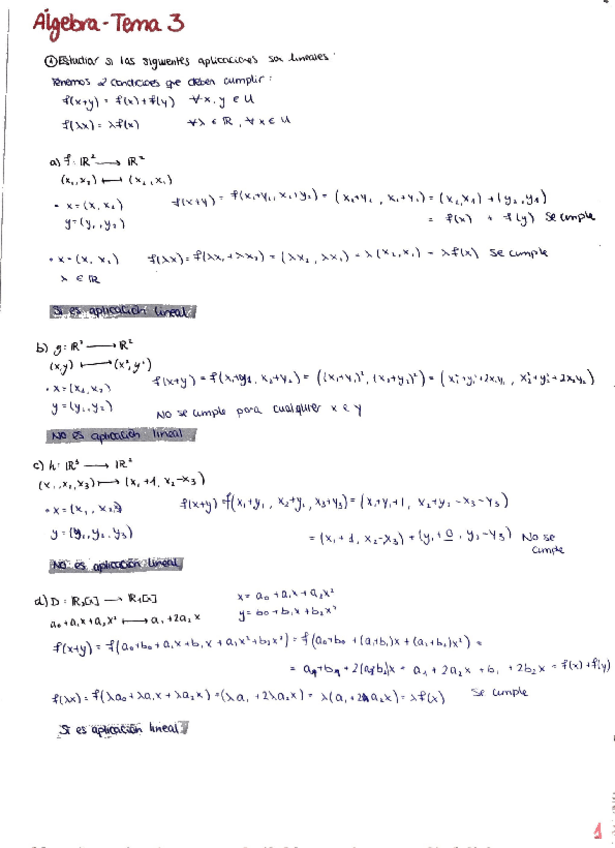 Álgebra - Tema 3
① Estudiar si las siguientes aplicaciones son lineales.
Tenemos 2 condiciones que deben cumplir:
f(x+y) = f(x) + f(y) ∀ x, y ∈ U
f(λx) = λf(x) ∀ λ ∈ ℝ, ∀ x ∈ U
a) f: ℝ² ⟶ ℝ²
(x₁, x₂) ⟼ (x₂, x₁)
• x = (x₁, x₂) f(x+y) = f(x₁+y₁, x₂+y₂) = (x₂+y₂, x₁+y₁) = (x₂, x₁) + (y₂, y₁)
y = (y₁, y₂) = f(x) + f(y) se cumple
• x = (x₁, x₂) f(λx) = f(λx₁, λx₂) = (λx₂, λx₁) = λ(x₂, x₁) = λf(x) se cumple
λ ∈ ℝ
Si es aplicación lineal
b) g: ℝ² ⟶ ℝ²
(x,y) ⟼ (x², y²)
• x = (x₁, x₂) f(x+y) = f(x₁+y₁, x₂+y₂) = ((x₁+y₁)², (x₂+y₂)²) = (x₁²+y₁²+2x₁y₁, x₂²+y₂²+2x₂y₂)
y = (y₁, y₂) No se cumple para cualquier x e y
No es aplicación lineal
c) h: ℝ³ ⟶ ℝ²
(x₁, x₂, x₃) ⟼ (x₁+1, x₂-x₃)
• x = (x₁, x₂, x₃) f(x+y) = f(x₁+y₁, x₂+y₂, x₃+y₃) = (x₁+y₁+1, x₂+y₂-x₃-y₃)
y = (y₁, y₂, y₃) = (x₁+1, x₂-x₃) + (y₁+0, y₂-y₃) No se
cumple
No es aplicación lineal
d) D: ℝ₂[x] ⟶ ℝ₁[x] x = a₀+a₁x+a₂x²
a₀+a₁x+a₂x² ⟼ a₁+2a₂x y = b₀+b₁x+b₂x²
f(x+y) = f(a₀+b₀+a₁x+b₁x+a₂x²+b₂x²) = f(a₀+b₀+(a₁+b₁)x+(a₂+b₂)x²) =
= a₁+b₁+2(a₂+b₂)x = a₁+2a₂x+b₁+2b₂x = f(x)+f(y)
f(λx) = f(λa₀+λa₁x+λa₂x²) = (λa₁+2λa₂x) = λ(a₁+2a₂x) = λf(x) se cumple
Si es aplicación lineal
1